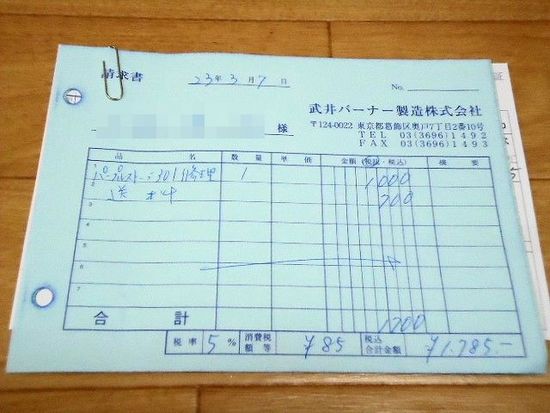 請求書
23年3月7日
No.
武井バーナー製造株式会社
〒124-0022 東京都葛飾区奥戸7丁目2番10号
TEL 03(3696)1492
FAX 03(3696)1493
様
品 名 数量 単価 金額(税抜・税込) 摘要
1 パープルストーブ301修理 1 1,000
2 送料 700
3
4
5
6
7
合計 1700
税率 5% 消費税額等 ¥85 税込合計金額 ¥1,785.-